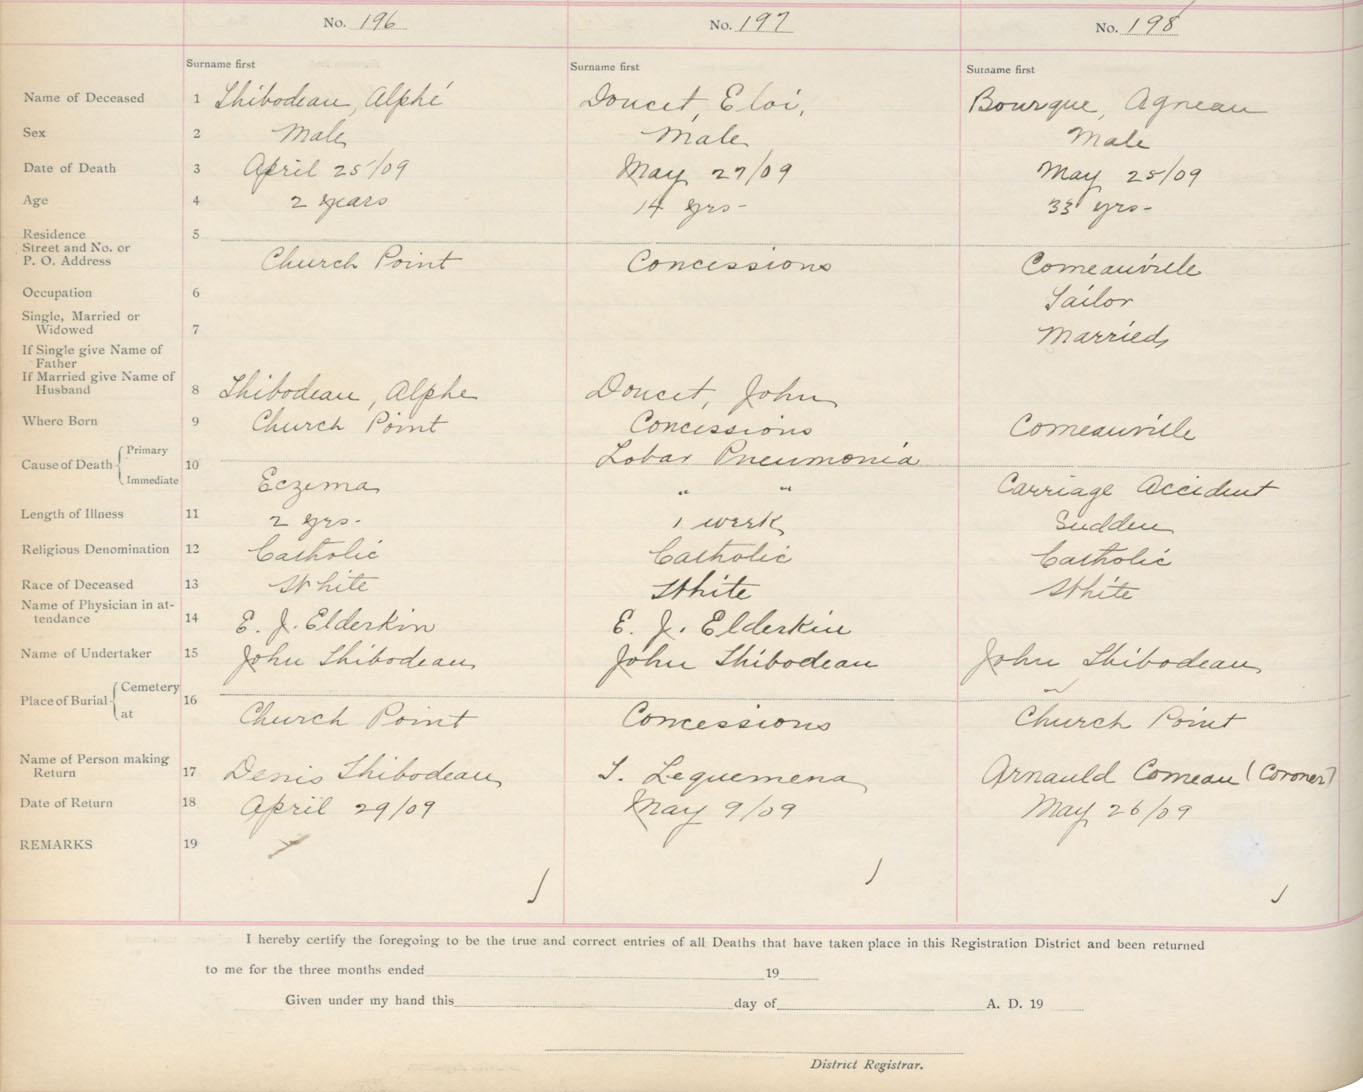 No. 196 No. 197 No. 198
Surname first Surname first Surname first
Name of Deceased 1 Thibodeau, Alphé Doucet, Eloi, Bourque, Agneau
Sex 2 Male Male Male
Date of Death 3 April 25/09 May 27/09 May 25/09
Age 4 2 years 14 yrs- 33 yrs-
Residence 5
Street and No. or
P. O. Address Church Point Concessions Comeauville
Occupation 6 Tailor
Single, Married or
Widowed 7 Married
If Single give Name of
Father
If Married give Name of
Husband 8 Thibodeau, Alphe Doucet, John
Where Born 9 Church Point Concessions Comeauville
Cause of Death Primary 10 Lobar Pneumonia
Immediate Eczema " " Carriage Accident
Length of Illness 11 2 yrs- 1 week Sudden
Religious Denomination 12 Catholic Catholic Catholic
Race of Deceased 13 White White White
Name of Physician in at-
tendance 14 E. J. Elderkin E. J. Elderkin
Name of Undertaker 15 John Thibodeau John Thibodeau John Thibodeau
Place of Burial Cemetery 16
at Church Point Concessions Church Point
Name of Person making
Return 17 Denis Thibodeau Arnauld Comeau (Coroner)
Date of Return 18 April 29/09 May 9/09 May 26/09
REMARKS 19
I hereby certify the foregoing to be the true and correct entries of all Deaths that have taken place in this Registration District and been returned
to me for the three months ended 19
Given under my hand this day of A. D. 19
District Registrar.